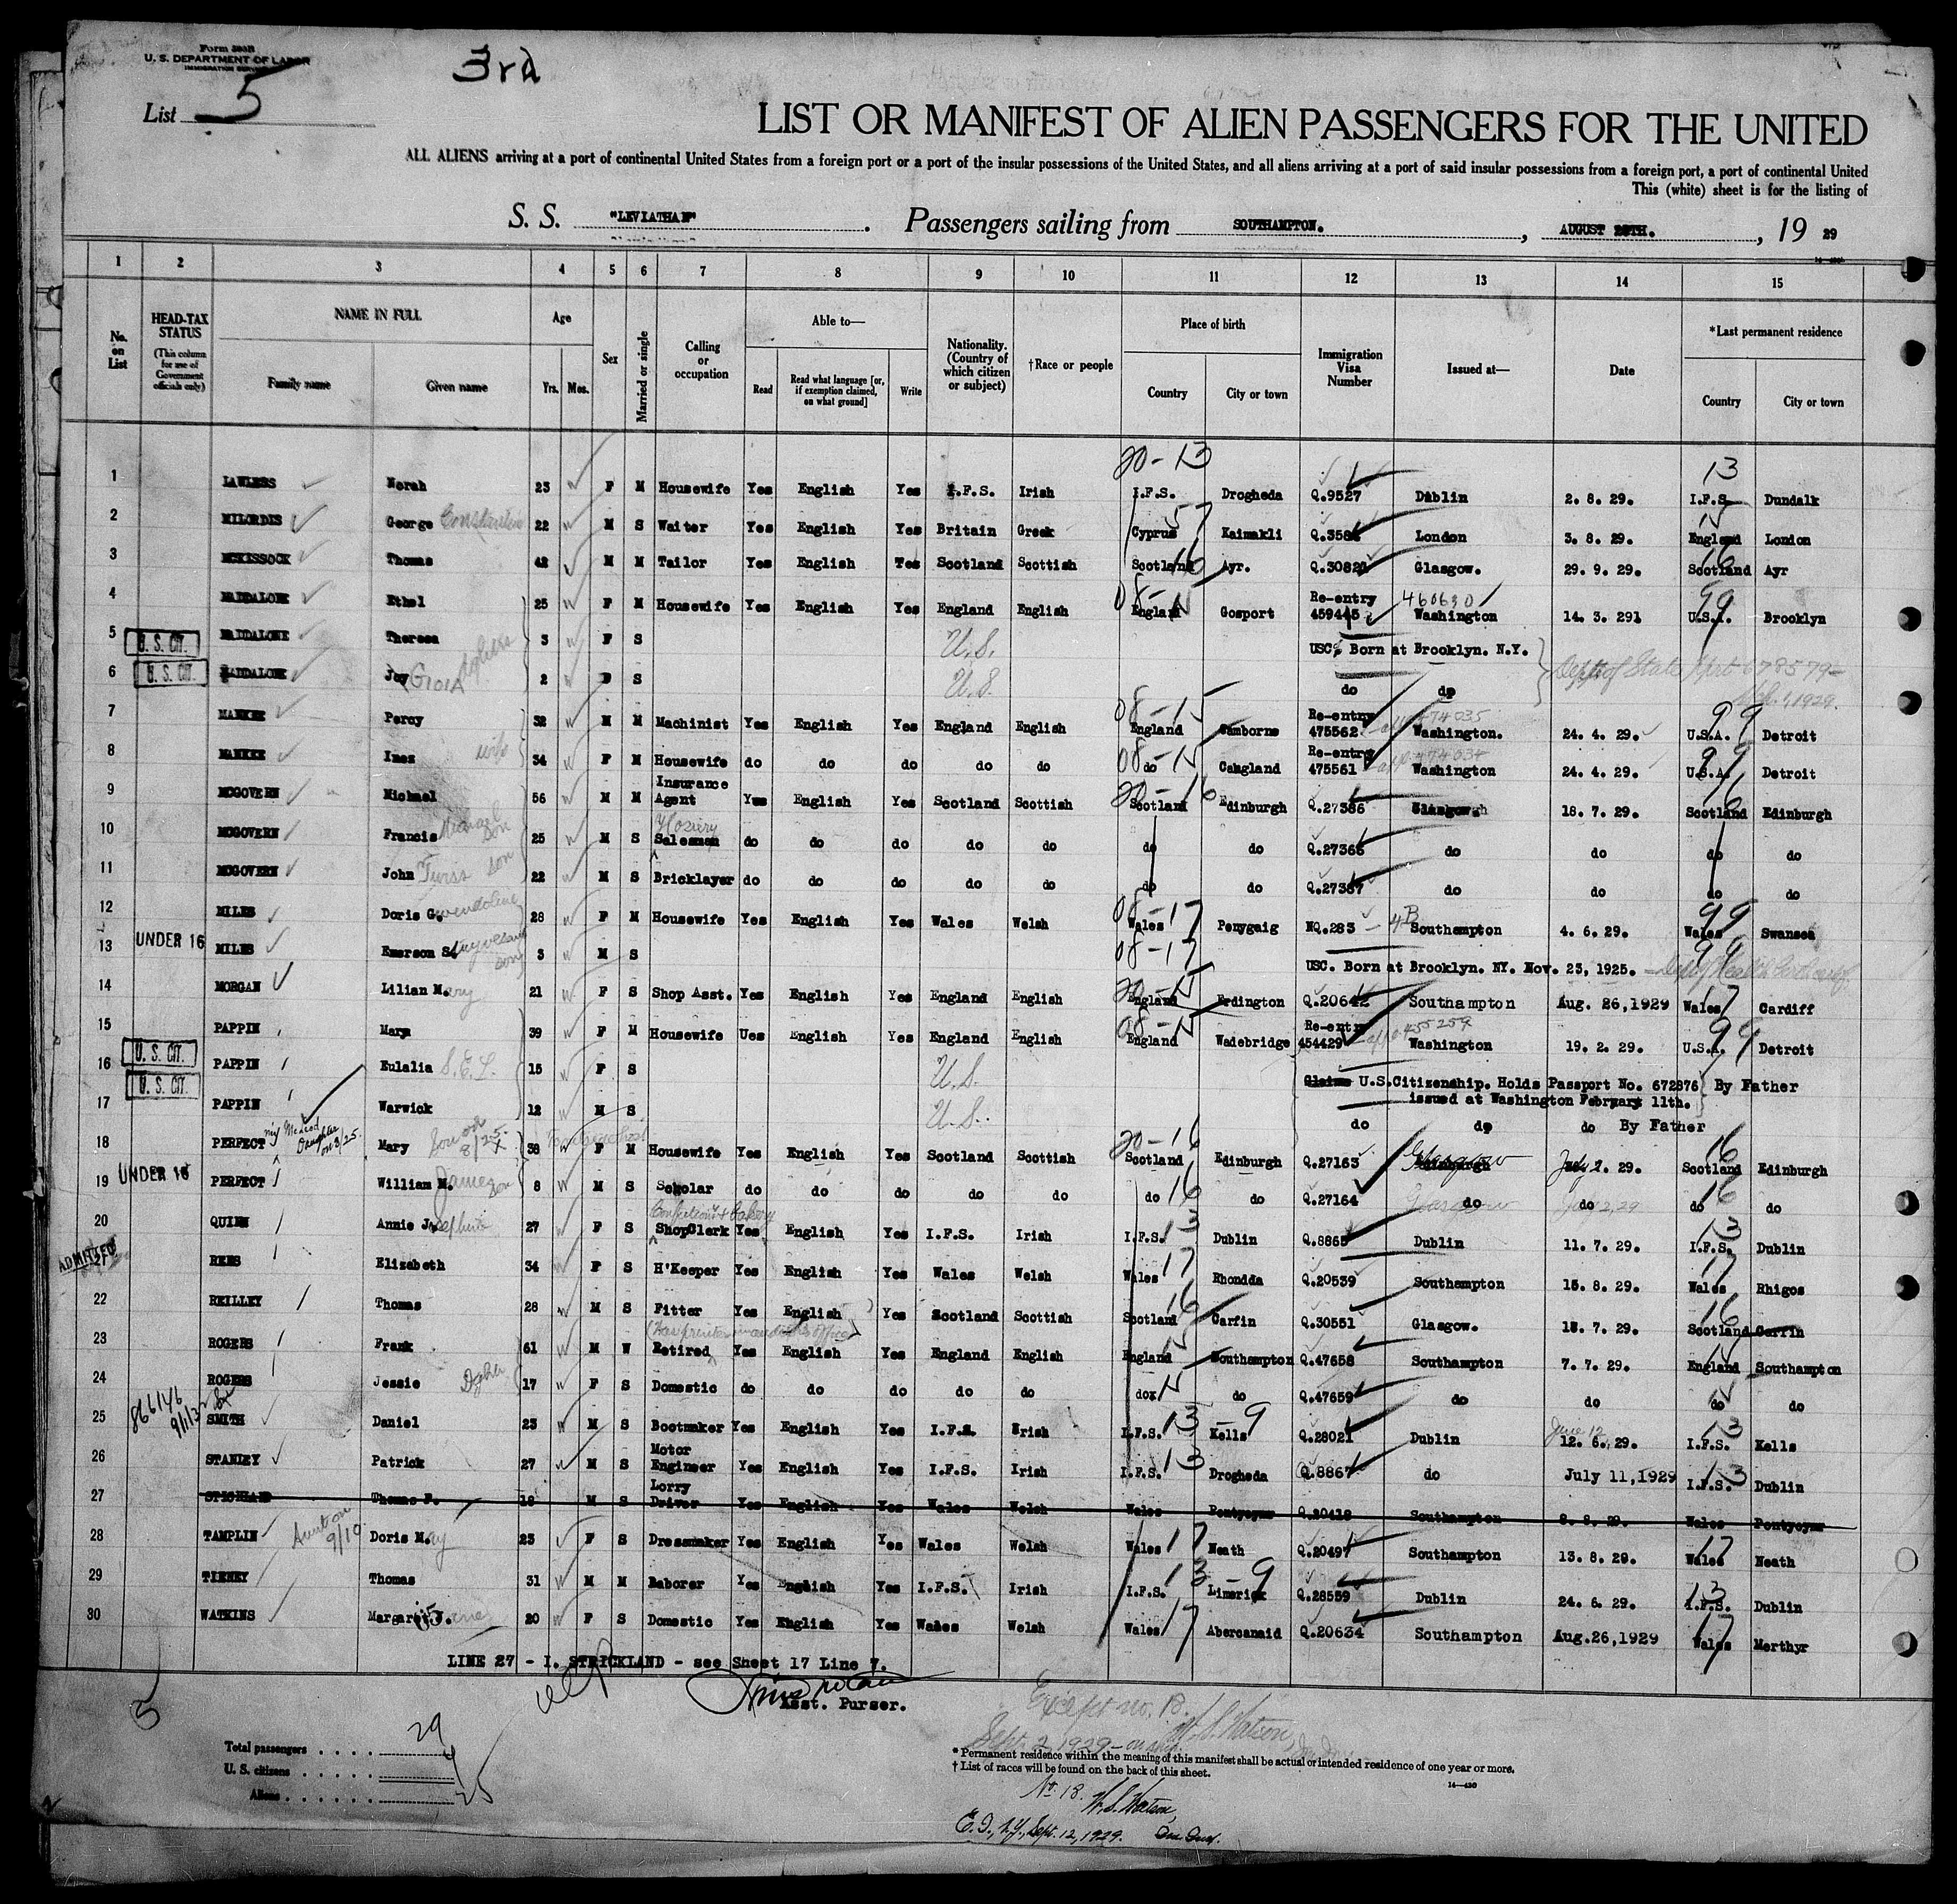 Form 500B
U. S. DEPARTMENT OF LABOR
IMMIGRATION SERVICE
3rd
List 5
LIST OR MANIFEST OF ALIEN PASSENGERS FOR THE UNITED
ALL ALIENS arriving at a port of continental United States from a foreign port or a port of the insular possessions of the United States, and all aliens arriving at a port of said insular possessions from a foreign port, a port of continental United
This (white) sheet is for the listing of
S. S. "LEVIATHAN" . Passengers sailing from SOUTHAMPTON. , AUGUST 28TH. , 19 29
1 2 3 4 5 6 7 8 9 10 11 12 13 14 15
No. on List
HEAD-TAX STATUS (This column for use of Government officials only)
NAME IN FULL Family name Given name
Age Yrs. Mos.
Sex
Married or single
Calling or occupation
Able to— Read Read what language [or, if exemption claimed, on what ground] Write
Nationality. (Country of which citizen or subject)
†Race or people
Place of birth Country City or town
Immigration Visa Number
Issued at—
Date
*Last permanent residence Country City or town
20-13 13
1 LAWLESS Norah 23 F M Housewife Yes English Yes I.F.S. Irish I.F.S. Drogheda Q.9527 Dublin 2. 8. 29. I.F.S. Dundalk
2 MILORDIS George 22 M S Waiter Yes English Yes Britain Greek Cyprus Kaimakli London 3. 8. 29. England London
3 MCKISSOCK Thomas 42 M M Tailor Yes English Yes Scotland Scottish Scotland Ayr. Glasgow. 29. 9. 29. Scotland Ayr
4 MADDALONE Ethel 25 F M Housewife Yes English Yes England English England Gosport Re-entry 459445 460630 Washington 14. 3. 291 U.S.A. Brooklyn
5 U. S. CIT. MADDALONE Theresa 3 F S U.S. USC. Born at Brooklyn. N.Y.
6 U. S. CIT. MADDALONE Joy (GIOIA 2 F S U.S. do do
7 MANKEE Percy 32 M M Machinist Yes English Yes England English England Camborne Re-entry 475562 Washington. 24. 4. 29. U.S.A. Detroit
8 MANKEE Inez wife 34 F M Housewife do do do do do do Re-entry 475561 Washington 24. 4. 29. U.S.A. Detroit
9 MCGOVERN Michael 56 M M Insurance Agent Yes English Yes Scotland Scottish Scotland Edinburgh Q.27386 18. 7. 29. Scotland Edinburgh
10 MCGOVERN Francis Michael son 25 M S Hosiery Salesman do do do do do do do do do do do
11 MCGOVERN John son 22 M S Bricklayer do do do do do do do Q.27387 do do do do
12 MILES Doris Gwendoline 28 F M Housewife Yes English Yes Wales Welsh Wales Penygaig NQ.283 Southampton 4. 6. 29. Wales Swansea
13 UNDER 16 MILES Emerson S. son 3 M S USC. Born at Brooklyn. NY. Nov. 23, 1925.
14 MORGAN Lilian Mary 21 F S Shop Asst. Yes English Yes England English England Erdington Q.20642 Southampton Aug. 26,1929 Wales Cardiff
15 PAPPIN Mary 39 F M Housewife Ues English Yes England English England Wadebridge Re-entry 454429 Washington 19. 2. 29. U.S.A. Detroit
16 U. S. CIT. PAPPIN Eulalia S.E.L. 15 F S U.S. Claims U.S.Citizenship. Holds Passport No. 672876 By Father
issued at Washington February 11th.
17 U. S. CIT. PAPPIN Warwick 12 M S U.S. do do do By Father
18 PERFECT Mary 38 F M Housewife Yes English Yes Scotland Scottish Scotland Edinburgh Q.27163 Glasgow July 2. 29. Scotland Edinburgh
19 UNDER 16 PERFECT William M. James son 8 M S Scholar do do do do do do do Q.27164 Glasgow do do do do
20 QUINN Annie Josephine 27 F S ShopClerk Yes English Yes I.F.S. Irish I.F.S. Dublin Q.8865 Dublin 11. 7. 29. I.F.S. Dublin
21 ADMITTED REES Elizabeth 34 F S H'Keeper Yes English Yes Wales Welsh Wales Rhondda Q.20539 Southampton 15. 8. 29. Wales Rhigos
22 REILLEY Thomas 28 M S Fitter Yes English Yes Scotland Scottish Scotland Carfin Q.30551 Glasgow. 18. 7. 29. Scotland Carfin
23 ROGERS Frank 61 M W Retired Yes English Yes England English England Southampton Q.47658 Southampton 7. 7. 29. England Southampton
24 ROGERS Jessie 17 F S Domestic do do do do do do do Q.47659 do do do do
25 866146 SMITH Daniel 23 M S Bootmaker Yes English Yes I.F.S. Irish I.F.S. Kells Q.28021 Dublin 12. 6. 29. I.F.S. Kells
26 STANLEY Patrick 27 M S Motor Engineer Yes English Yes I.F.S. Irish I.F.S. Drogheda Q.8867 do July 11,1929 I.F.S. Dublin
27 Thomas F. 18 M S Lorry Driver Yes English Yes Wales Welsh Wales Pontycymr Q.20418 Southampton 8. 8. 29. Wales Pontycymr
28 TAMPLIN Doris May 23 F S Dressmaker Yes English Yes Wales Welsh Wales Neath Q.20497 Southampton 13. 8. 29. Wales Neath
29 TIERNEY Thomas 31 M M Laborer Yes English Yes I.F.S. Irish I.F.S. Limerick Q.28559 Dublin 24. 6. 29. I.F.S. Dublin
30 WATKINS Margaret J. 20 F S Domestic Yes English Yes Wales Welsh Wales Abercanaid Q.20634 Southampton Aug.26,1929 Wales Merthyr
LINE 27 - I. STRICKLAND - see Sheet 17 Line 7.
Asst. Purser.
Except no. 18.
W. S. Watson,
Sept. 2, 1929 - on ship
Total passengers . . . . 29
U. S. citizens . . . . . 4
Aliens . . . . . . 25
* Permanent residence within the meaning of this manifest shall be actual or intended residence of one year or more.
† List of races will be found on the back of this sheet.
14-430
No. 18. W. S. Watson,
E. I., N.Y., Sept. 12, 1929.